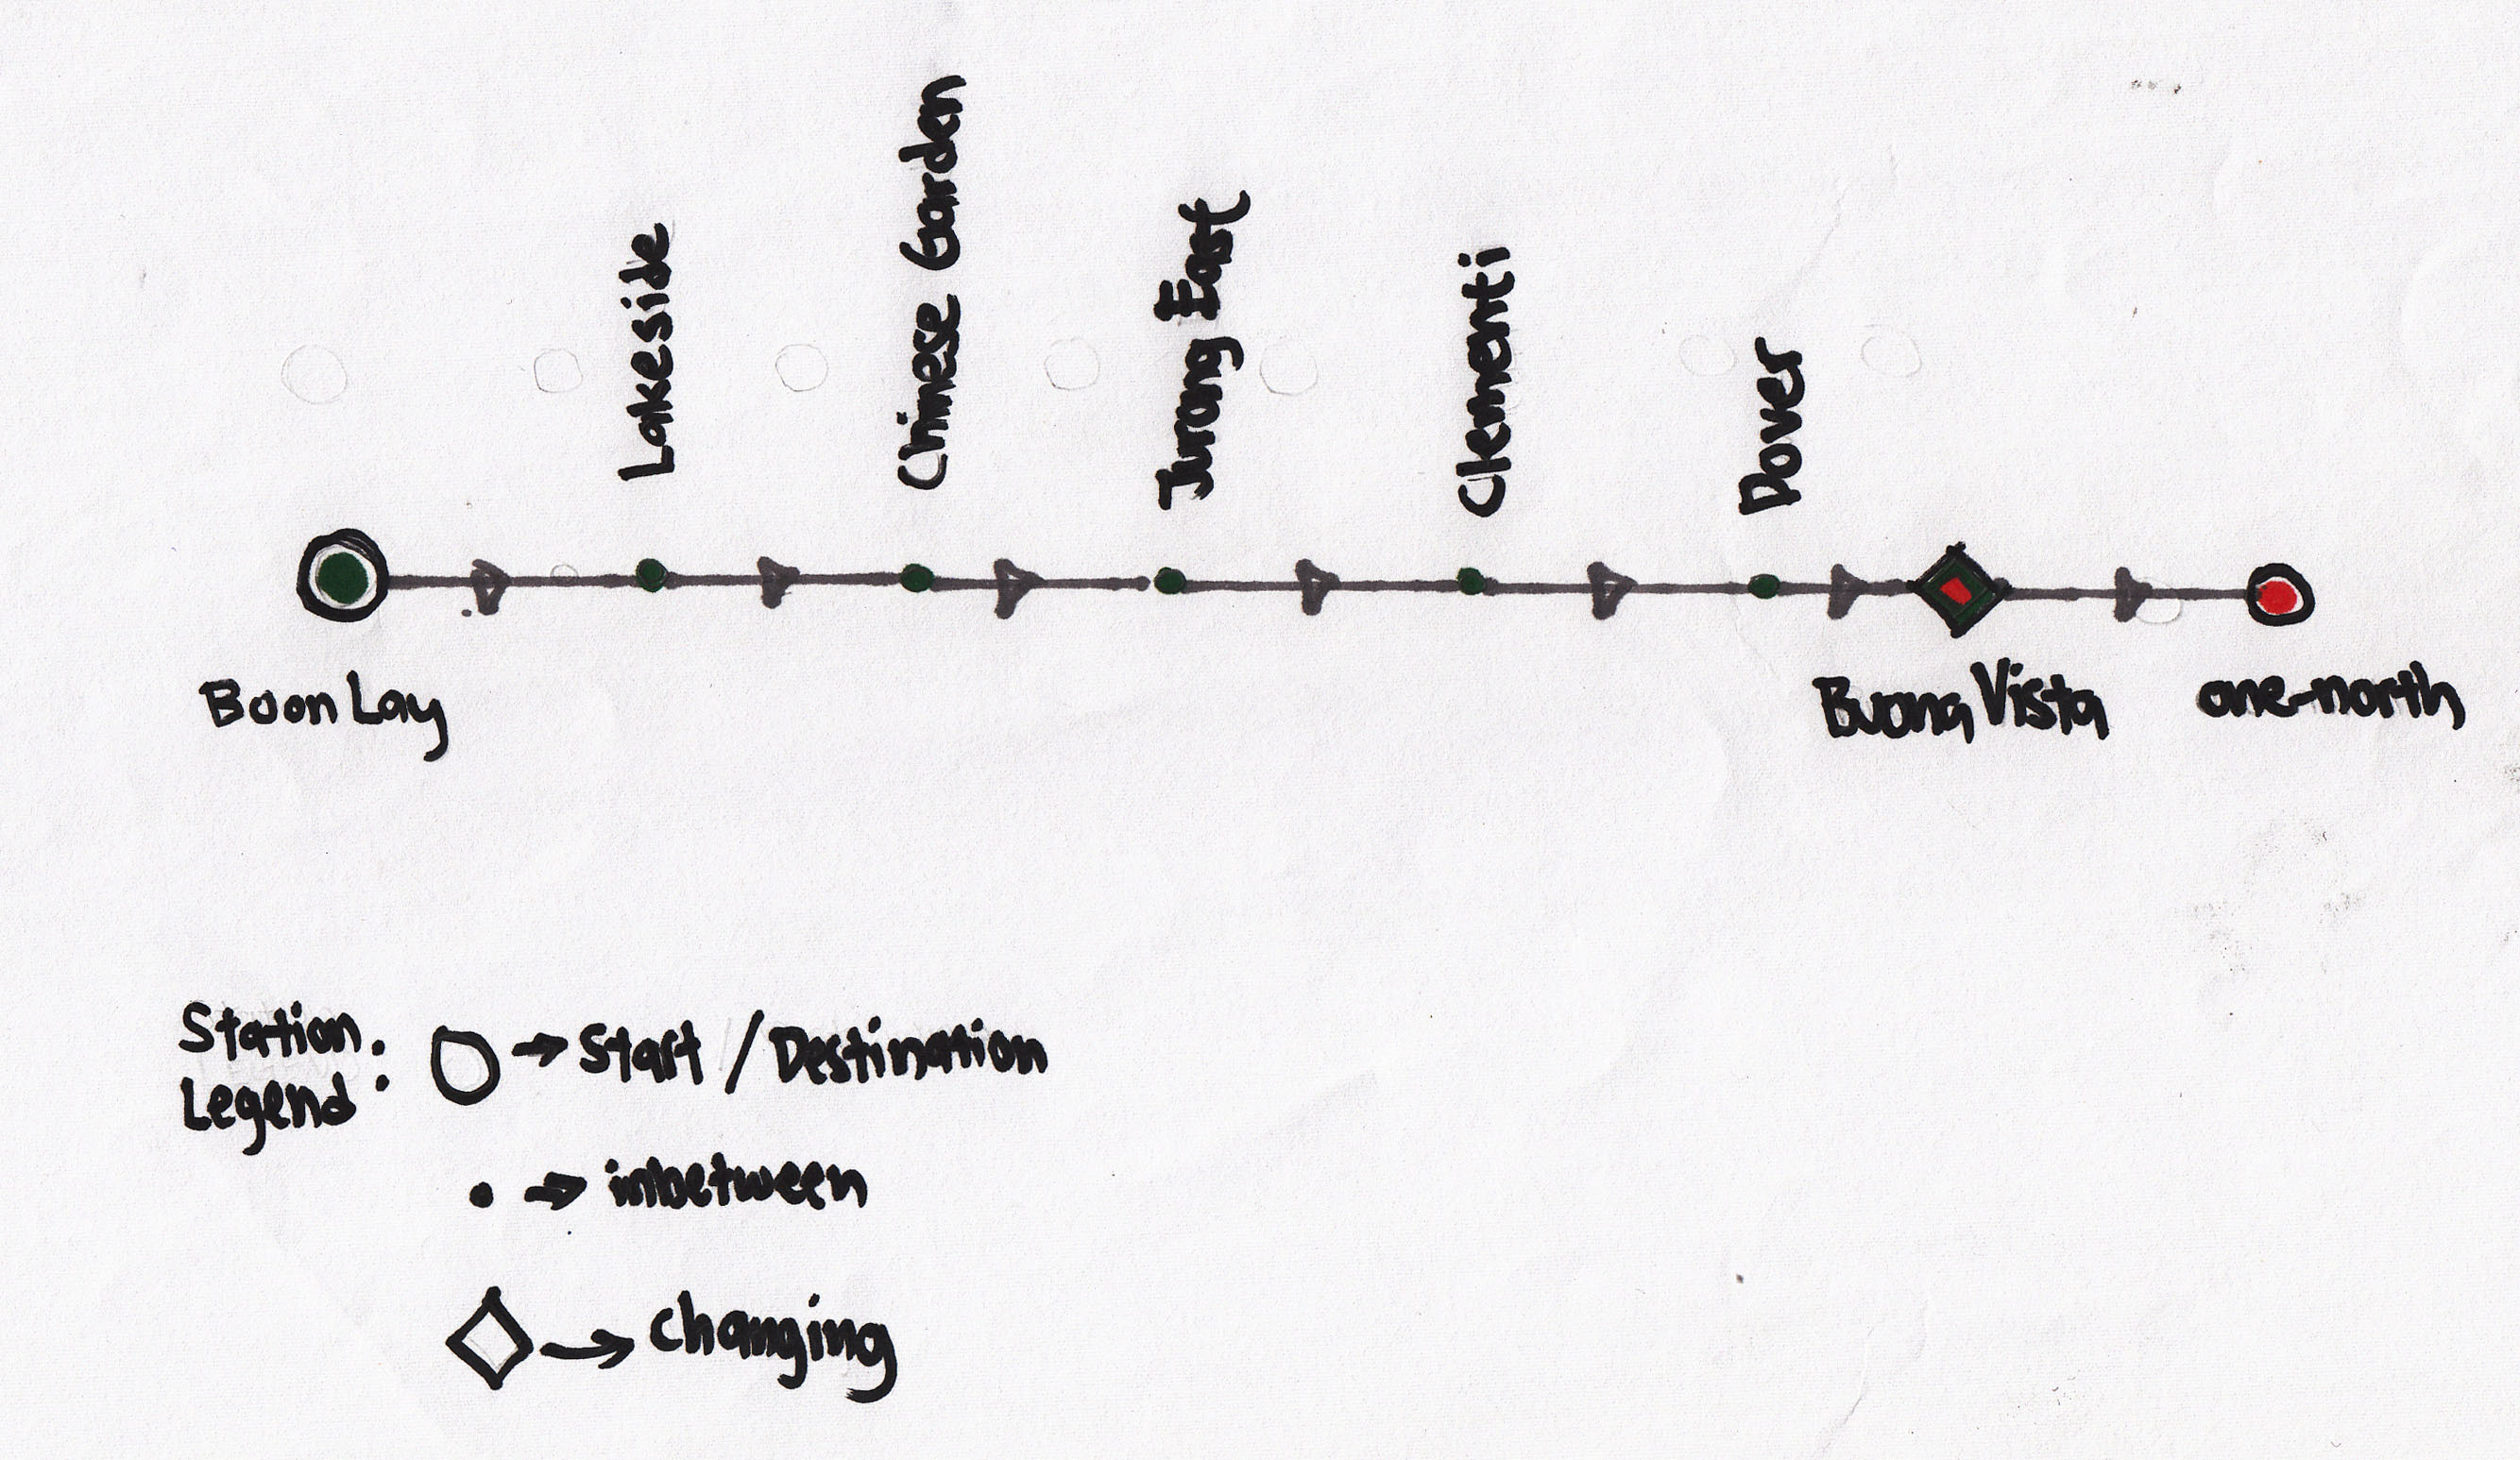 Lakeside
Chinese Garden
Jurong East
Clementi
Dover
Boon Lay
Buona Vista
one-north
Station
Legend :
→ Start / Destination
→ inbetween
→ changing